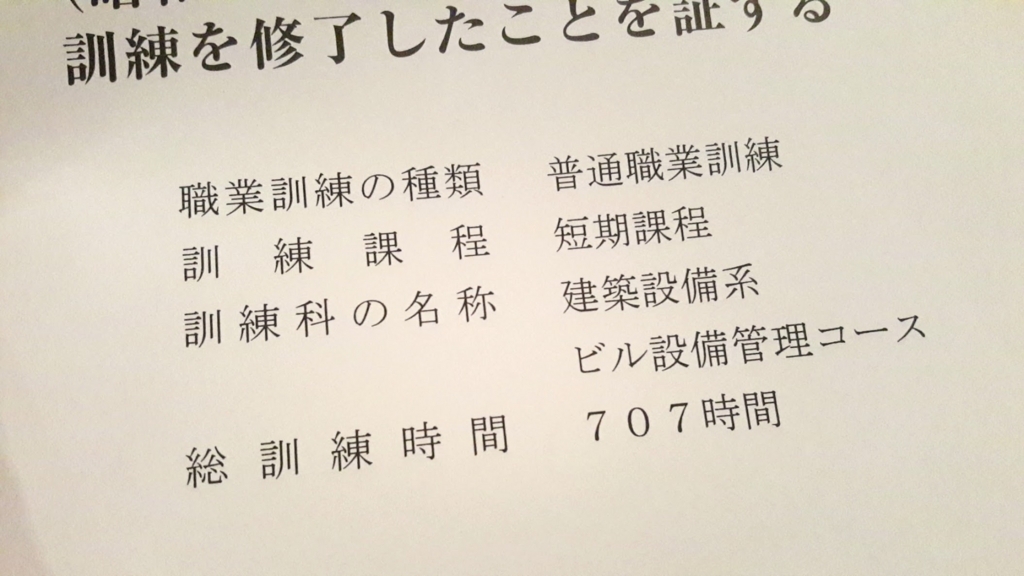 訓練を修了したことを証する
職業訓練の種類 普通職業訓練
訓練課程 短期課程
訓練科の名称 建築設備系
ビル設備管理コース
総訓練時間 707時間